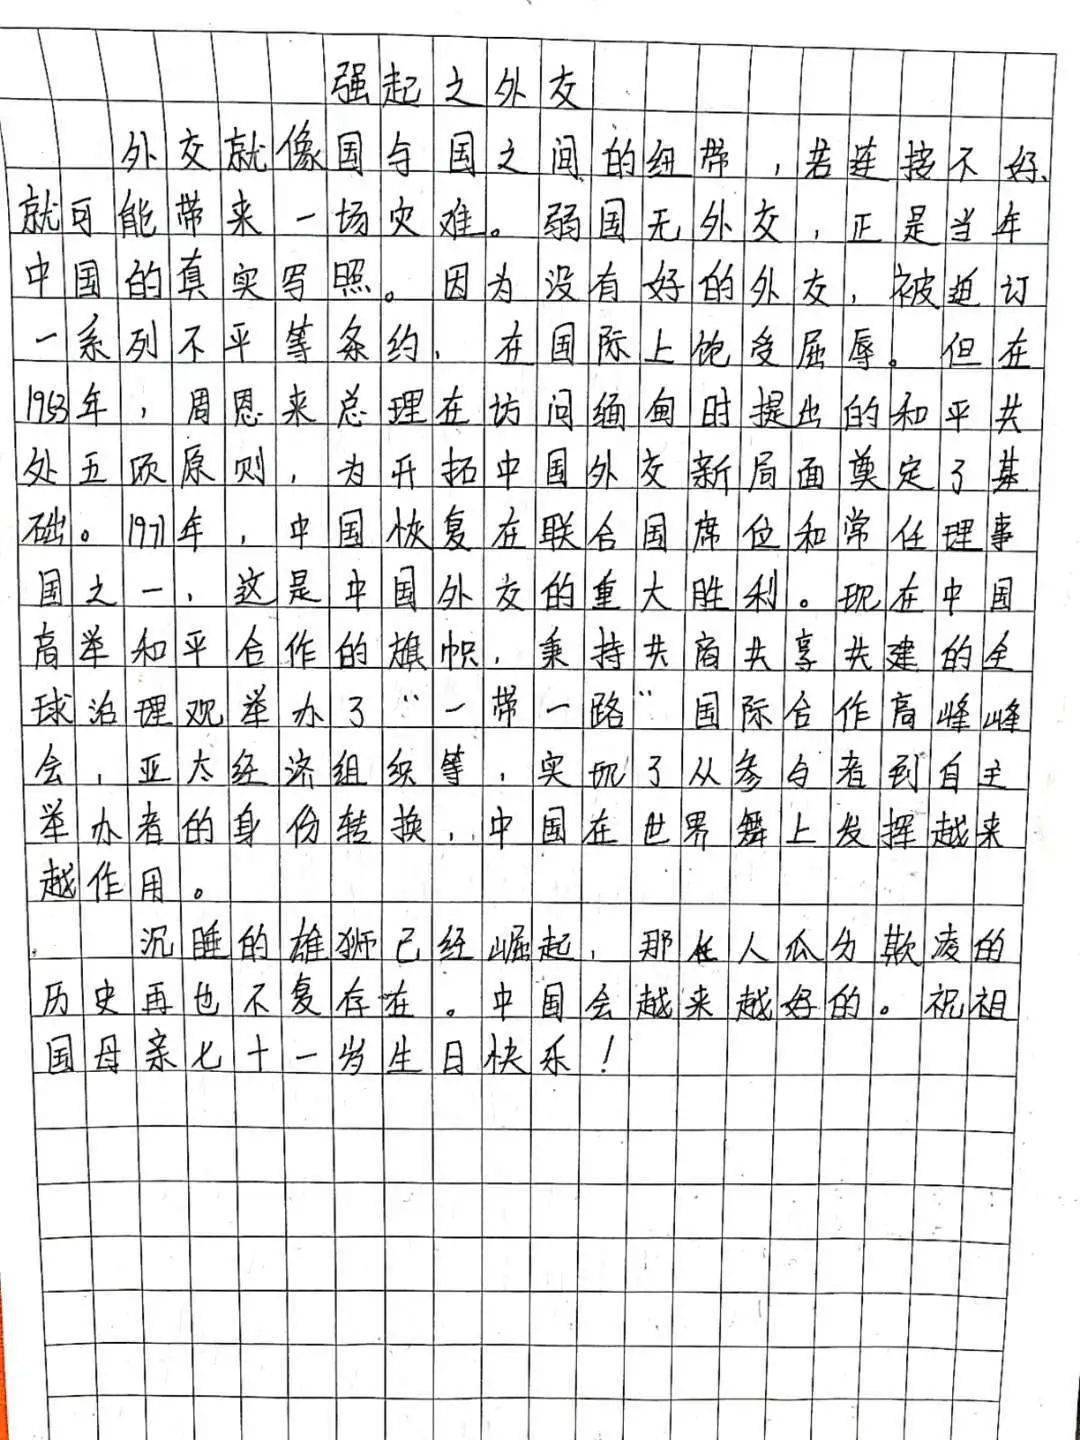 强起之外交
外交就像国与国之间的纽带,若连接不好、
就可能带来一场灾难。弱国无外交,正是当年
中国的真实写照。因为没有好的外交,被迫订
一系列不平等条约,在国际上饱受屈辱。但在
1953年,周恩来总理在访问缅甸时提出的和平共
处五项原则,为开拓中国外交新局面奠定了基
础。1971年,中国恢复在联合国席位和常任理事
国之一,这是中国外交的重大胜利。现在中国
高举和平合作的旗帜,秉持共商共享共建的全
球治理观举办了“一带一路”国际合作高峰峰
会,亚太经济组织等,实现了从参与者到自主
举办者的身份转换,中国在世界舞上发挥越来
越作用。
沉睡的雄狮已经崛起,那任人瓜分欺凌的
历史再也不复存在。中国会越来越好的。祝祖
国母亲七十一岁生日快乐!